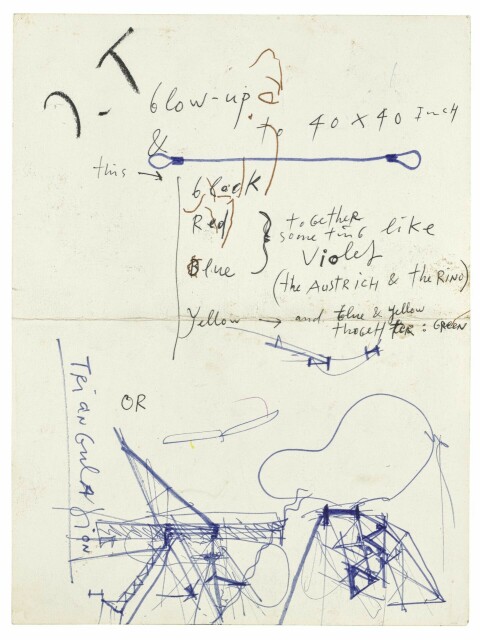 blow-up
to 40 x 40 Inch
&
this →
black
Red
Blue
together
some ting like
Violet
(the AUSTRICH & the RINO)
Yellow → and blue & yellow
thogether: GREEN
OR
TRIANGULATION